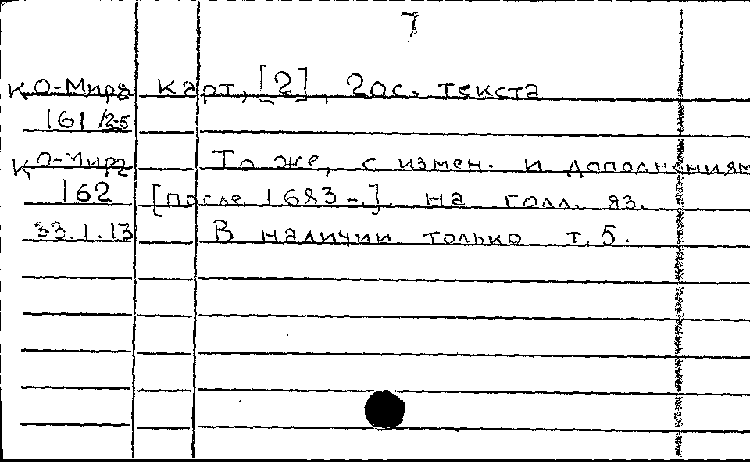 7
К О-Мира карт, [2], 20с. текста
161/2-5
К О-Мира То же, с измен. и дополнениям
162 [после 1683-]. на голл. яз.
33.1.13 В наличии только т. 5.